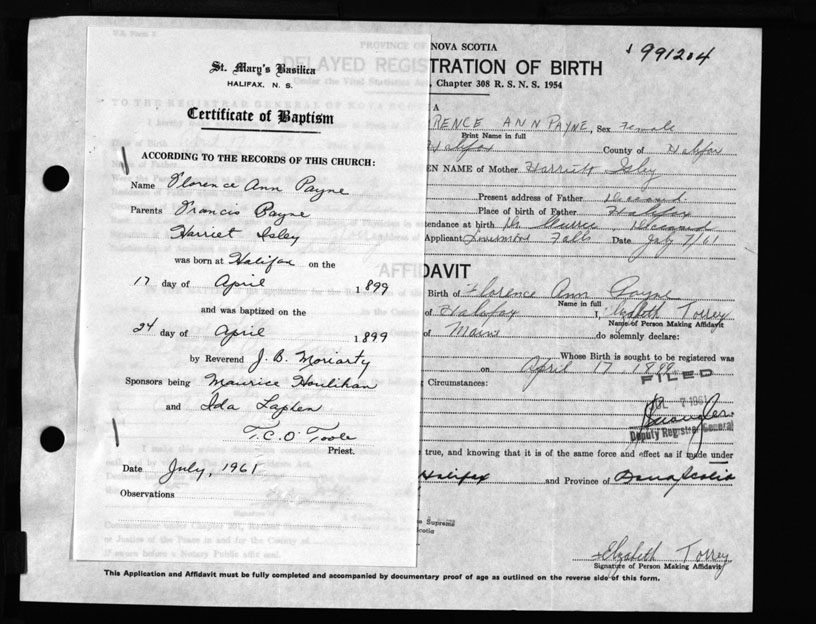 St. Mary's Basilica
HALIFAX, N. S.
Certificate of Baptism
ACCORDING TO THE RECORDS OF THIS CHURCH:
Name Florence Ann Payne
Parents Francis Payne
Harriet Isley
was born at Halifax on the
17 day of April 1899
and was baptized on the
24 day of April 1899
by Reverend J. B. Moriarty
Sponsors being Maurice Houlihan
and Ida Laphen
T. C. O'Toole
Priest.
Date July, 1961
Observations
PROVINCE OF NOVA SCOTIA
991204
DELAYED REGISTRATION OF BIRTH
, Chapter 308 R. S. N. S. 1954
A
RENCE ANN PAYNE, Sex Female
Print Name in full
Halifax County of Halifax
EN NAME OF Mother Harriett Isley
Present address of Father Deceased
Place of birth of Father Halifax
tendance at birth Dr. Deceased
Applicant Falls Date July 7/61
AFFIDAVIT
Birth of Florence Ann Payne
Name in full
of Halifax I, Elizabeth Torrey
Name of Person Making Affidavit
of Maine do solemnly declare:
Whose Birth is sought to be registered was
on April 17 1899
Circumstances:
FILED
7 1961
Deputy Registrar General
true, and knowing that it is of the same force and effect as if made under
Halifax and Province of Nova Scotia
Supreme
cotia
Elizabeth Torrey
Signature of Person Making Affidavit
This Application and Affidavit must be fully completed and accompanied by documentary proof of age as outlined on the reverse side of this form.